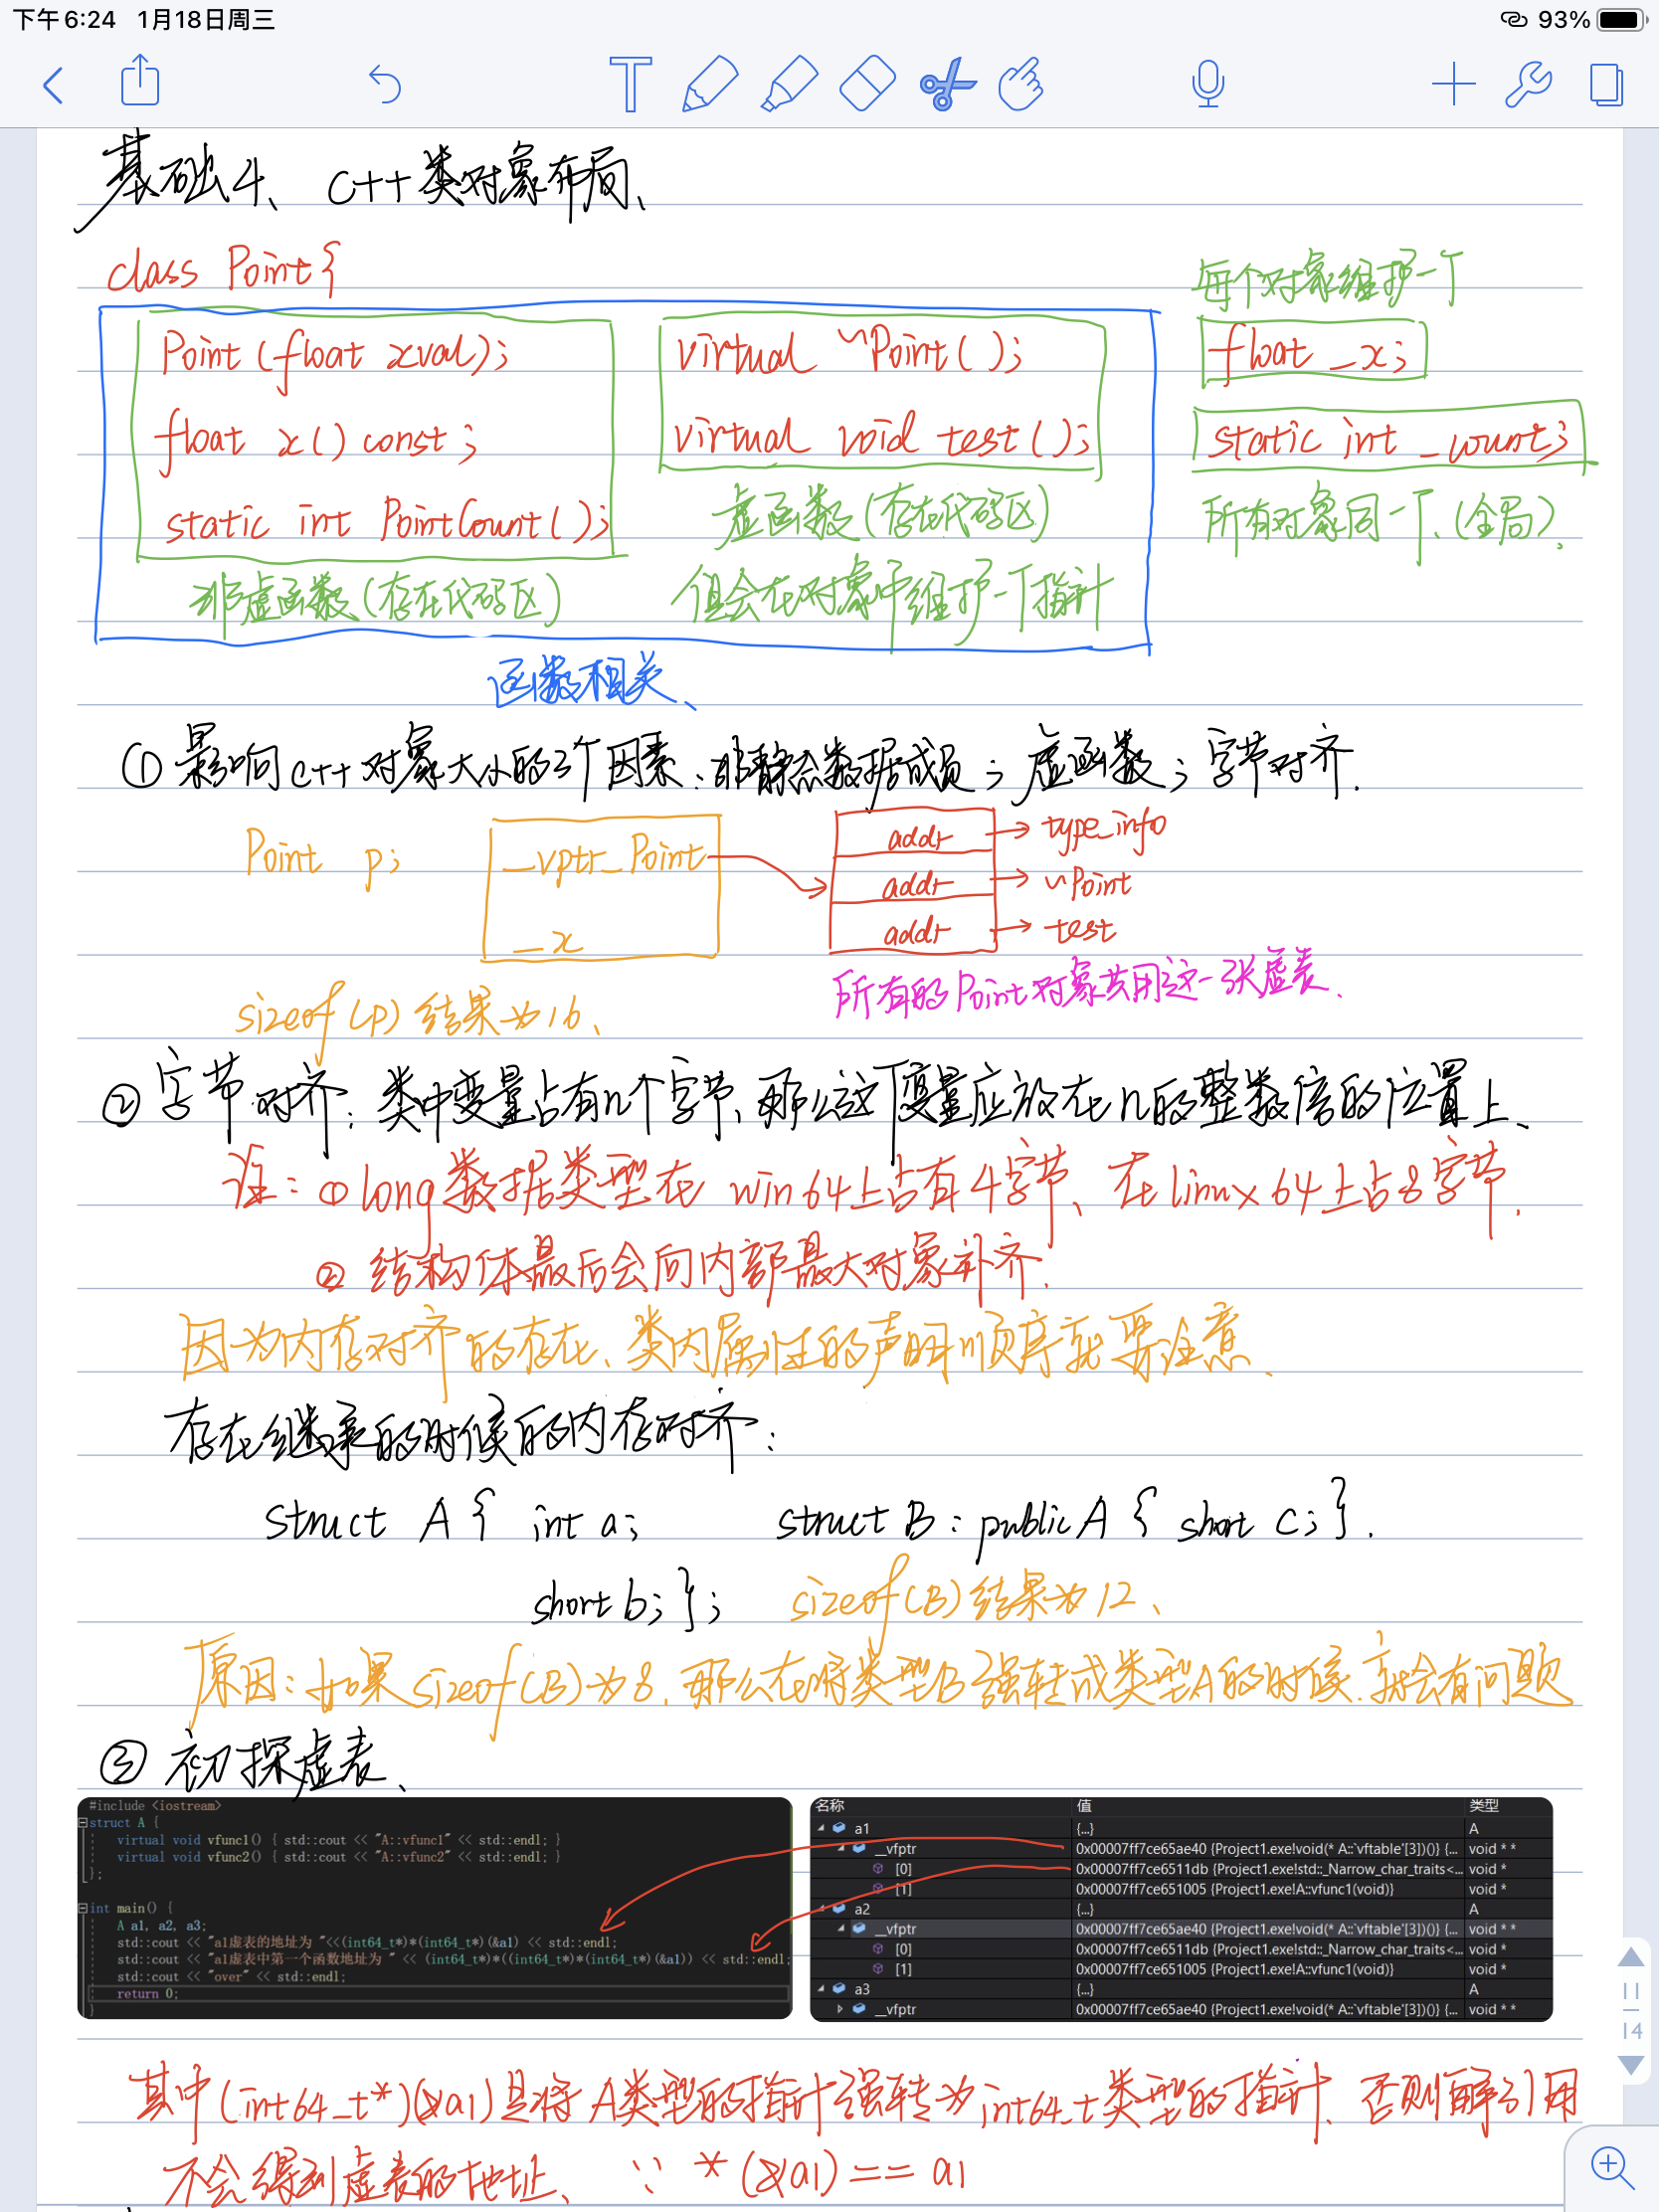 下午6:24 1月18日周三 93%
基础4、C++类对象布局、
class Point{
每个对象维护一个
Point(float xval);
virtual ~Point();
float _x;
float x() const;
virtual void test();
static int _count;
static int PointCount();
虚函数(存在代码区)
所有对象同一个、(全局)、
非虚函数(存在代码区)
但会在对象中维护一个指针
函数相关、
① 影响c++对象大小的3个因素:非静态数据成员;虚函数;字节对齐.
Point p;
__vptr_Point
addr → type_info
addr → ~Point
_x
addr → test
所有的Point对象共用这一张虚表、
sizeof(p)结果为16、
② 字节对齐:类中变量占有n个字节、那么这个变量应放在n的整数倍的位置上、
注:① long数据类型在 win64上占有4字节、在linux 64上占8字节.
② 结构体最后会向内部最大对象补齐.
因为内存对齐的存在、类内属性的声明顺序就要注意、
存在继承的时候的内存对齐:
struct A { int a; struct B: public A { short c; }.
short b; }; sizeof(B)结果为12、
原因:如果sizeof(B)为8、那么在将类型B强转成类型A的时候.就会有问题
③ 初探虚表、
#include <iostream>
struct A {
virtual void vfunc1() { std::cout << "A::vfunc1" << std::endl; }
virtual void vfunc2() { std::cout << "A::vfunc2" << std::endl; }
};
int main() {
A a1, a2, a3;
std::cout << "a1虚表的地址为 "<<(int64_t*)*(int64_t*)(&a1) << std::endl;
std::cout << "a1虚表中第一个函数地址为 " << (int64_t*)*((int64_t*)*(int64_t*)(&a1)) << std::endl;
std::cout << "over" << std::endl;
return 0;
}
名称 值 类型
a1 {...} A
__vfptr 0x00007ff7ce65ae40 {Project1.exe!void(* A::`vftable'[3])()} {... void * *
[0] 0x00007ff7ce6511db {Project1.exe!std::_Narrow_char_traits<... void *
[1] 0x00007ff7ce651005 {Project1.exe!A::vfunc1(void)} void *
a2 {...} A
__vfptr 0x00007ff7ce65ae40 {Project1.exe!void(* A::`vftable'[3])()} {... void * *
[0] 0x00007ff7ce6511db {Project1.exe!std::_Narrow_char_traits<... void *
[1] 0x00007ff7ce651005 {Project1.exe!A::vfunc1(void)} void *
a3 {...} A
__vfptr 0x00007ff7ce65ae40 {Project1.exe!void(* A::`vftable'[3])()} {... void * *
11
14
其中(int64_t*)(&a1)是将A类型的指针强转为int64_t类型的指针、否则解引用
不会得到虚表的地址、∵ *(&a1) == a1